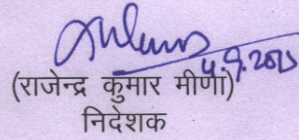 4.9.2015
(राजेन्द्र कुमार मीणा)
निदेशक